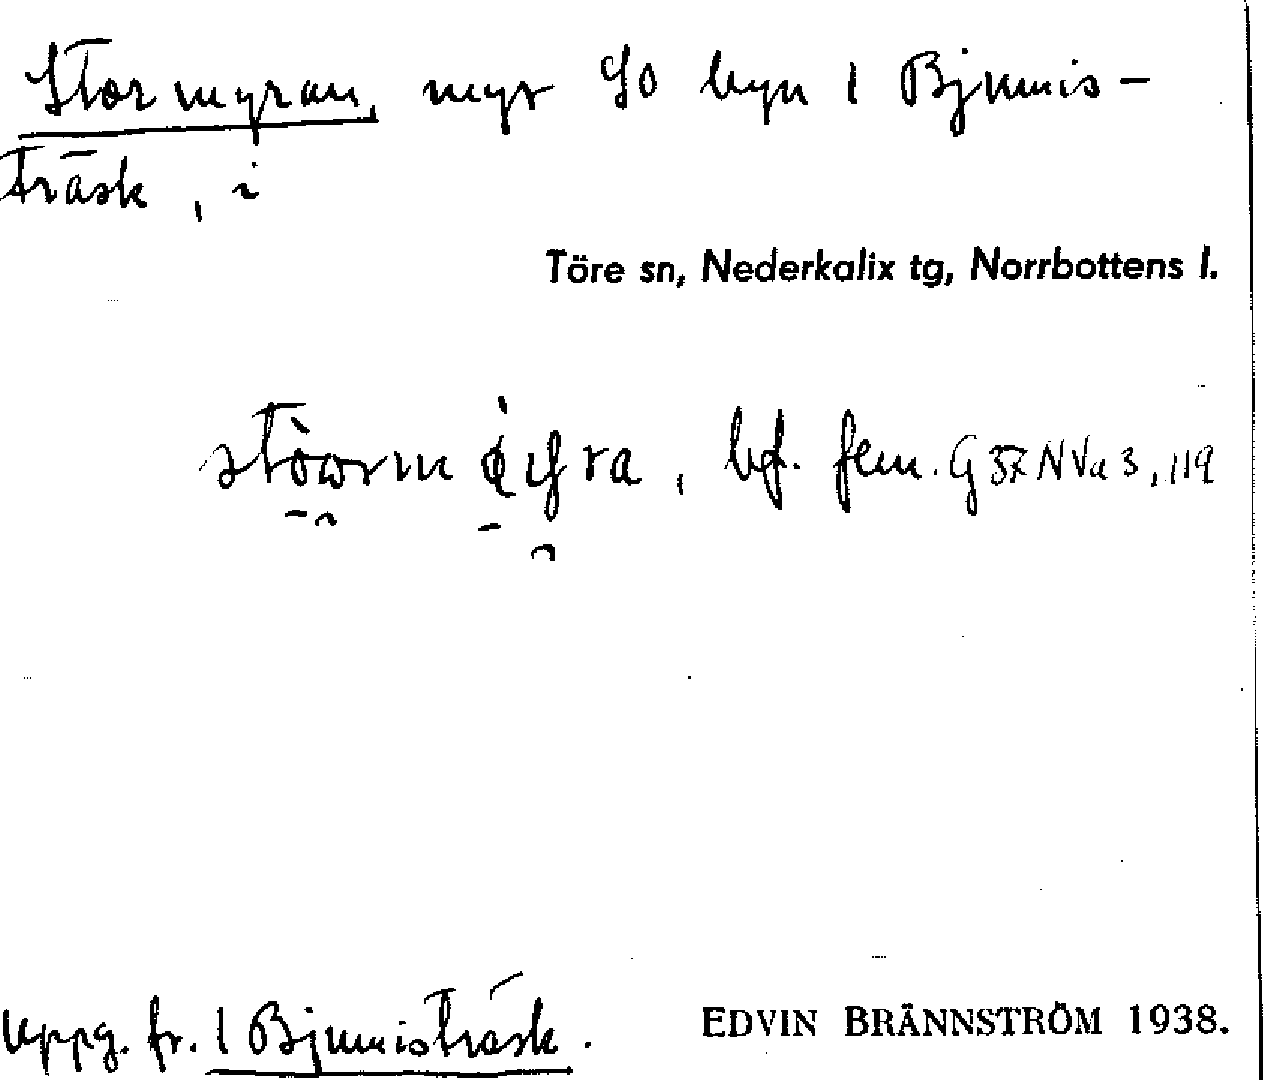 Stormyran, myr So byn 1 Bjumis-
träsk, i
Töre sn, Nederkalix tg, Norrbottens l.
bf. fem. G 37 N Va 3, 119
Uppg. fr. 1 Bjumisträsk.
EDVIN BRÄNNSTRÖM 1938.